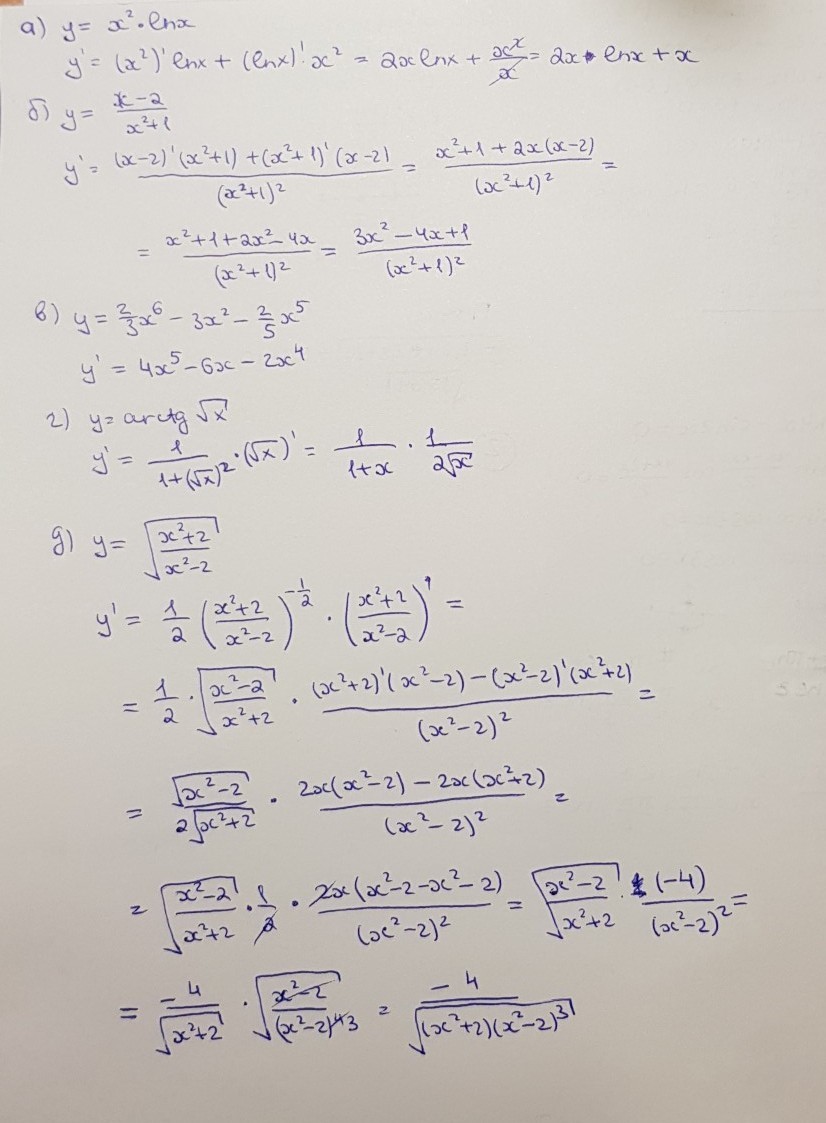 а) y = x²·lnx
y' = (x²)' lnx + (lnx)'·x² = 2x lnx + x²/x = 2x·lnx + x
б) y = (x-2)/(x²+1)
y' = ((x-2)'(x²+1) + (x²+1)'(x-2))/(x²+1)² = (x²+1+2x(x-2))/(x²+1)² =
= (x²+1+2x²-4x)/(x²+1)² = (3x²-4x+1)/(x²+1)²
в) y = 2/3x⁶ - 3x² - 2/5x⁵
y' = 4x⁵ - 6x - 2x⁴
г) y = arctg √x
y' = 1/(1+(√x)²)·(√x)' = 1/(1+x) · 1/(2√x)
д) y = √((x²+2)/(x²-2))
y' = 1/2 ((x²+2)/(x²-2))^(-1/2) · ((x²+2)/(x²-2))' =
= 1/2 · √((x²-2)/(x²+2)) · ((x²+2)'(x²-2) - (x²-2)'(x²+2))/(x²-2)² =
= √(x²-2)/(2√(x²+2)) · (2x(x²-2) - 2x(x²+2))/(x²-2)² =
= √((x²-2)/(x²+2)) · 1/2 · (2x(x²-2-x²-2))/(x²-2)² = √((x²-2)/(x²+2)) · (-4)/(x²-2)² =
= -4/√(x²+2) · √((x²-2)/(x²-2)⁴3) = -4/√((x²+2)(x²-2)³)